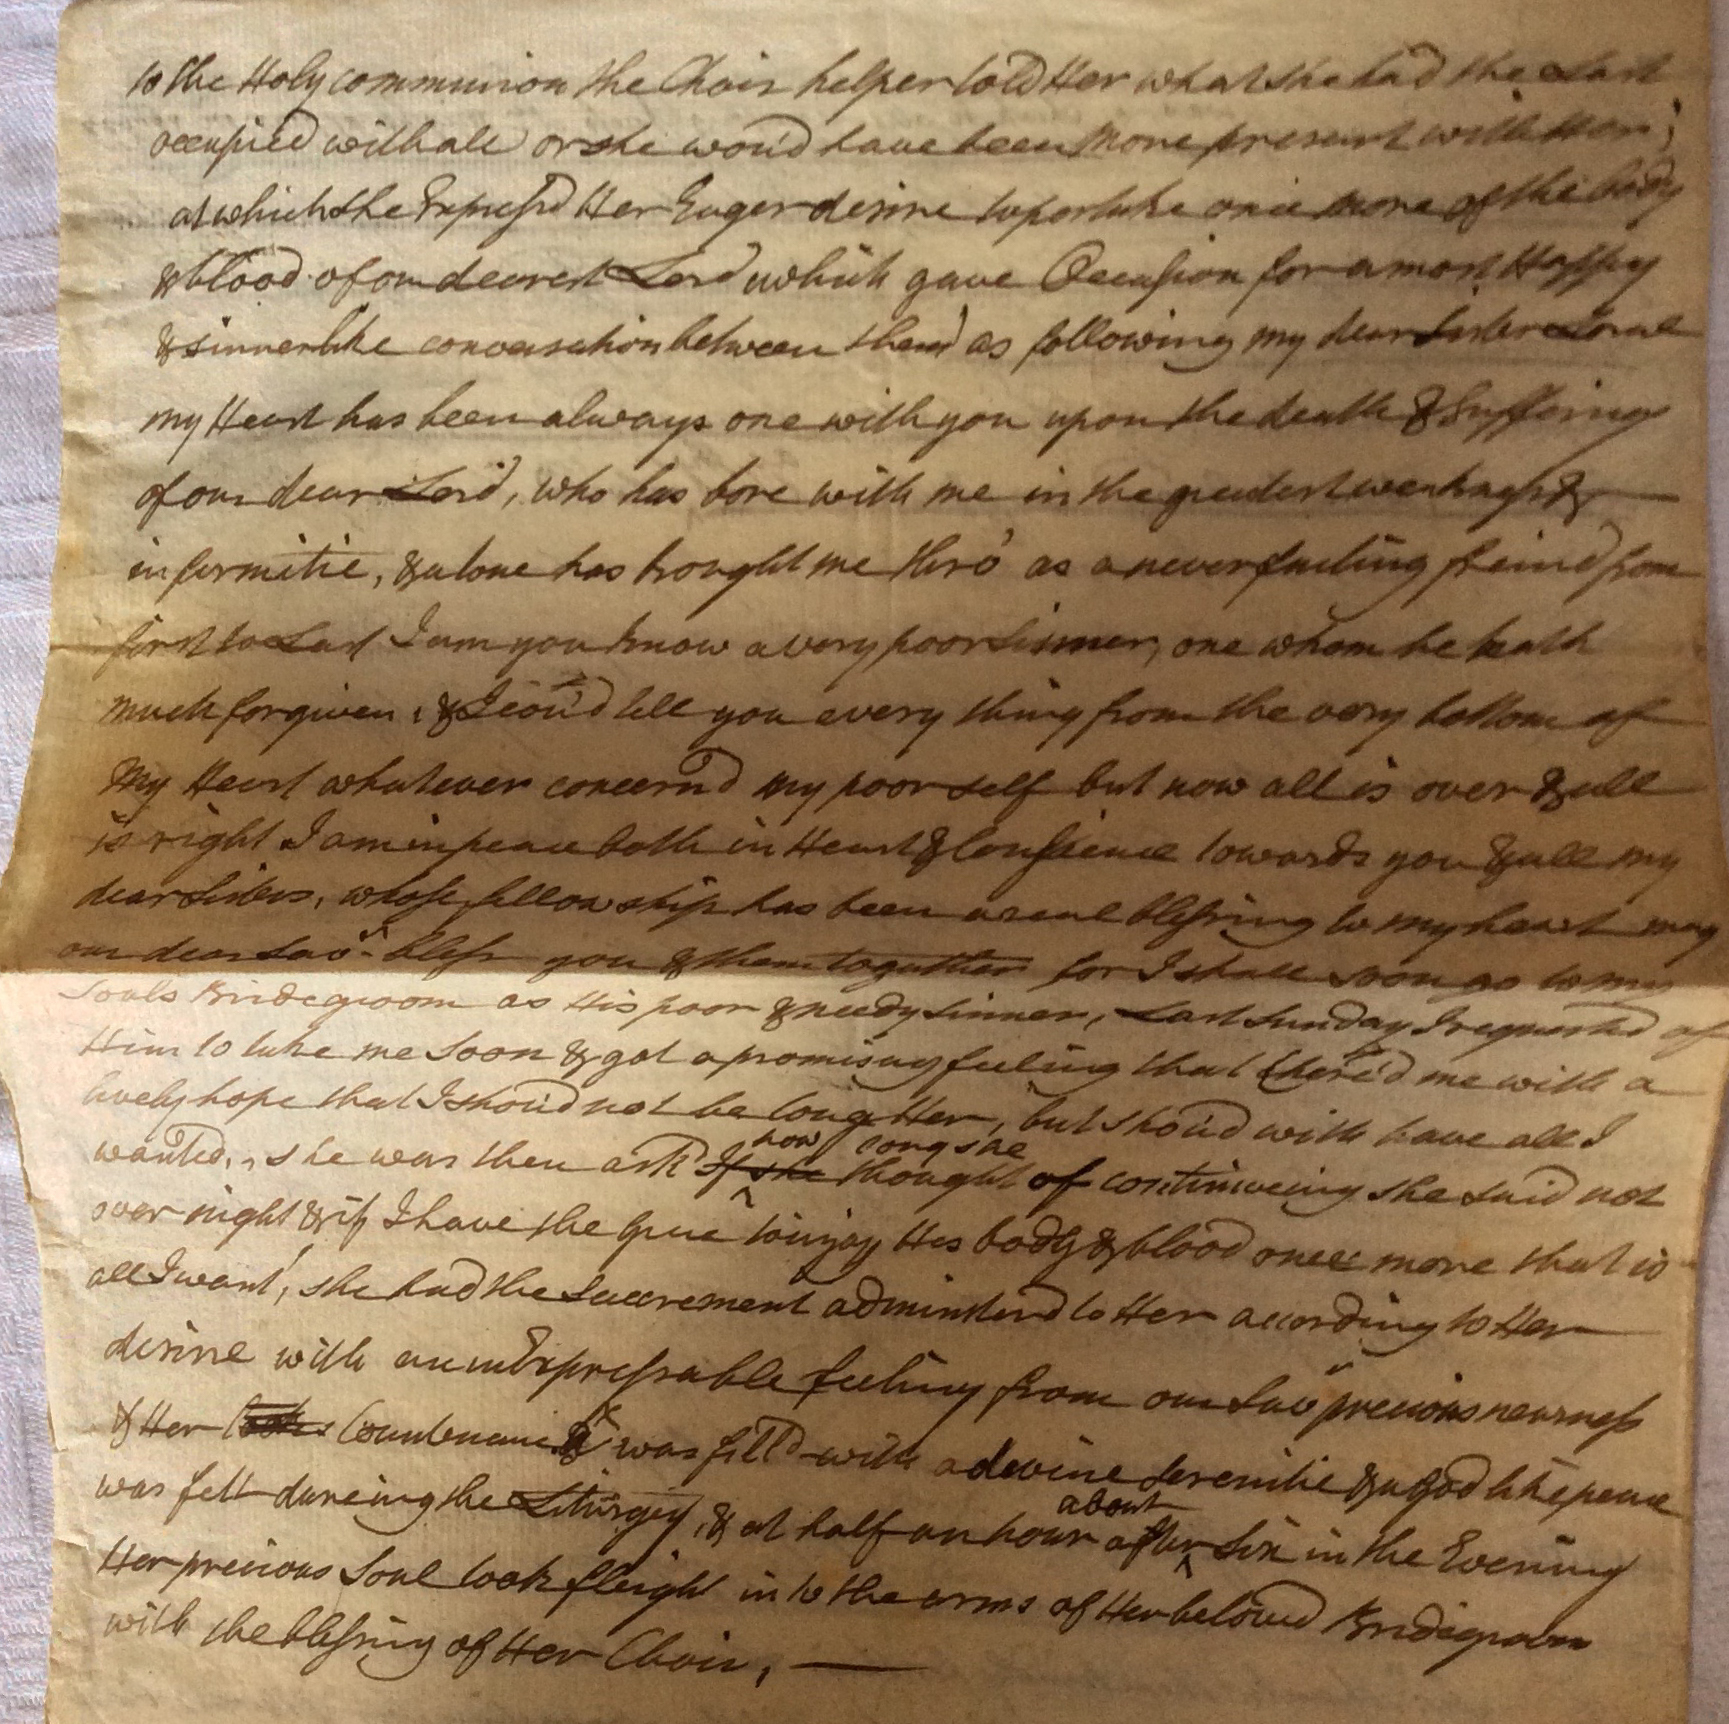 to the Holy communion the Choir helper told Her what she had the Last
occupied with all or she wou'd have been more present with Her;
at which she Express'd Her Eager desire to partake once more of the body
& blood of our dearest Lord which gave Occasion for a most Happy
& sinnerlike conversation between them as following my dear Sister
my Heart has been always one with you upon the death & Suffering
of our dear Lord, who has bore with me in the greatest weakness &
infirmitie, & alone has brought me thro' as a never faeling freind from
first to Last I am you know a very poor Sinner, one whom he hath
much forgiven, & I cou'd tell you every thing from the very bottom of
My Heart whatever concern'd my poor self but now all is over & all
is right I am in peace both in Heart & Consience towards you & all my
dear Sisters, whose fellowship has been a real blessing to my heart may
our dear Savr bless you & them together for I shall soon go to my
Souls Bridegroom as His poor & needy sinner, Last Sunday I requested of
Him to take me Soon & got a promising feeling that Chere'd me with a
lively hope that I shou'd not be long Her, but shou'd with have all I
wanted, she was then ask'd If she how long she thought of continueing she said not
over night & if I have the grace to injoy His body & blood once more that is
all I want, she had the Saccrement administerd to Her according to Her
desire with an inExpressable feeling from our Savrs precious nearness
& Her Looks Countenance was fill'd with a devine serenitie & a god like peace
was felt dureing the Liturgy, & at half an hour about after Six in the Evening
Her precious Soul took fleight in to the arms of Her beloved Bridegroom
with the blessing of Her Choir,